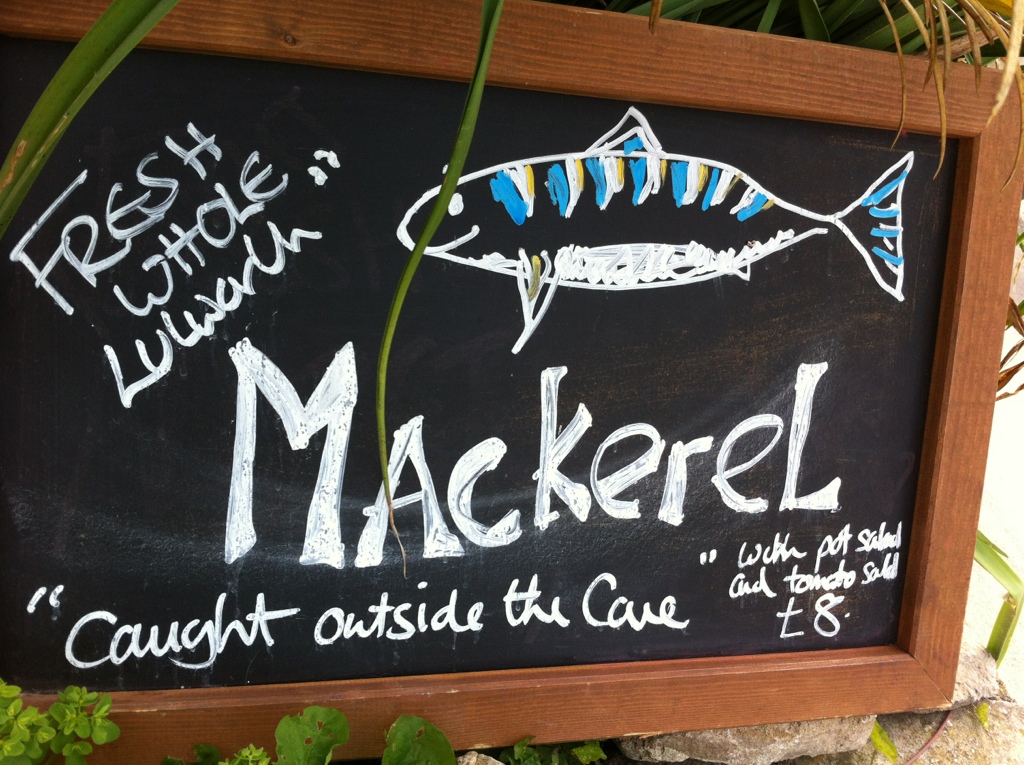 FRESH
WHOLE "
Lulworth
MAckereL
" Caught outside the Cove "
with pot salad
and tomato salad
£8.